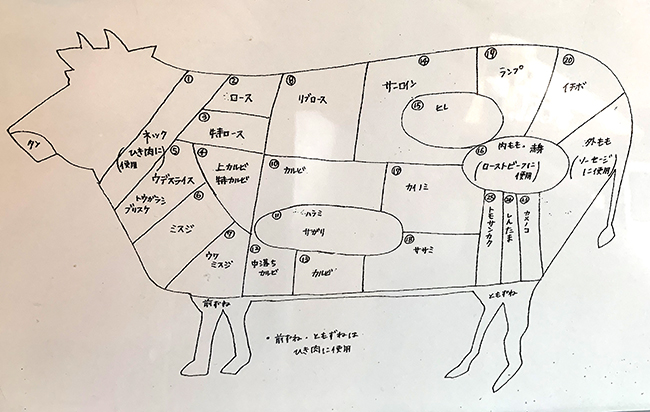 タン
①
ネック
(ひき肉に
使用)
②
ロース
③
特ロース
④
上カルビ
特カルビ
⑤
ウデスライス
トウガラシ
ブリスケ
⑥
ミスジ
⑦
ウワ
ミスジ
リブロース
⑩
カルビ
⑪
ハラミ
サガリ
⑫
中落ち
カルビ
⑬
カルビ
⑭
サーロイン
⑮
ヒレ
⑯
内もも・
(ローストビーフに
使用)
⑰
カイノミ
⑱
ササミ
⑲
ランプ
⑳
イチボ
外もも
(ソーセージ
に使用)
トモサンカク
しんたま
カメノコ
前ずね
ともずね
・前ずね・ともずねは
ひき肉に使用